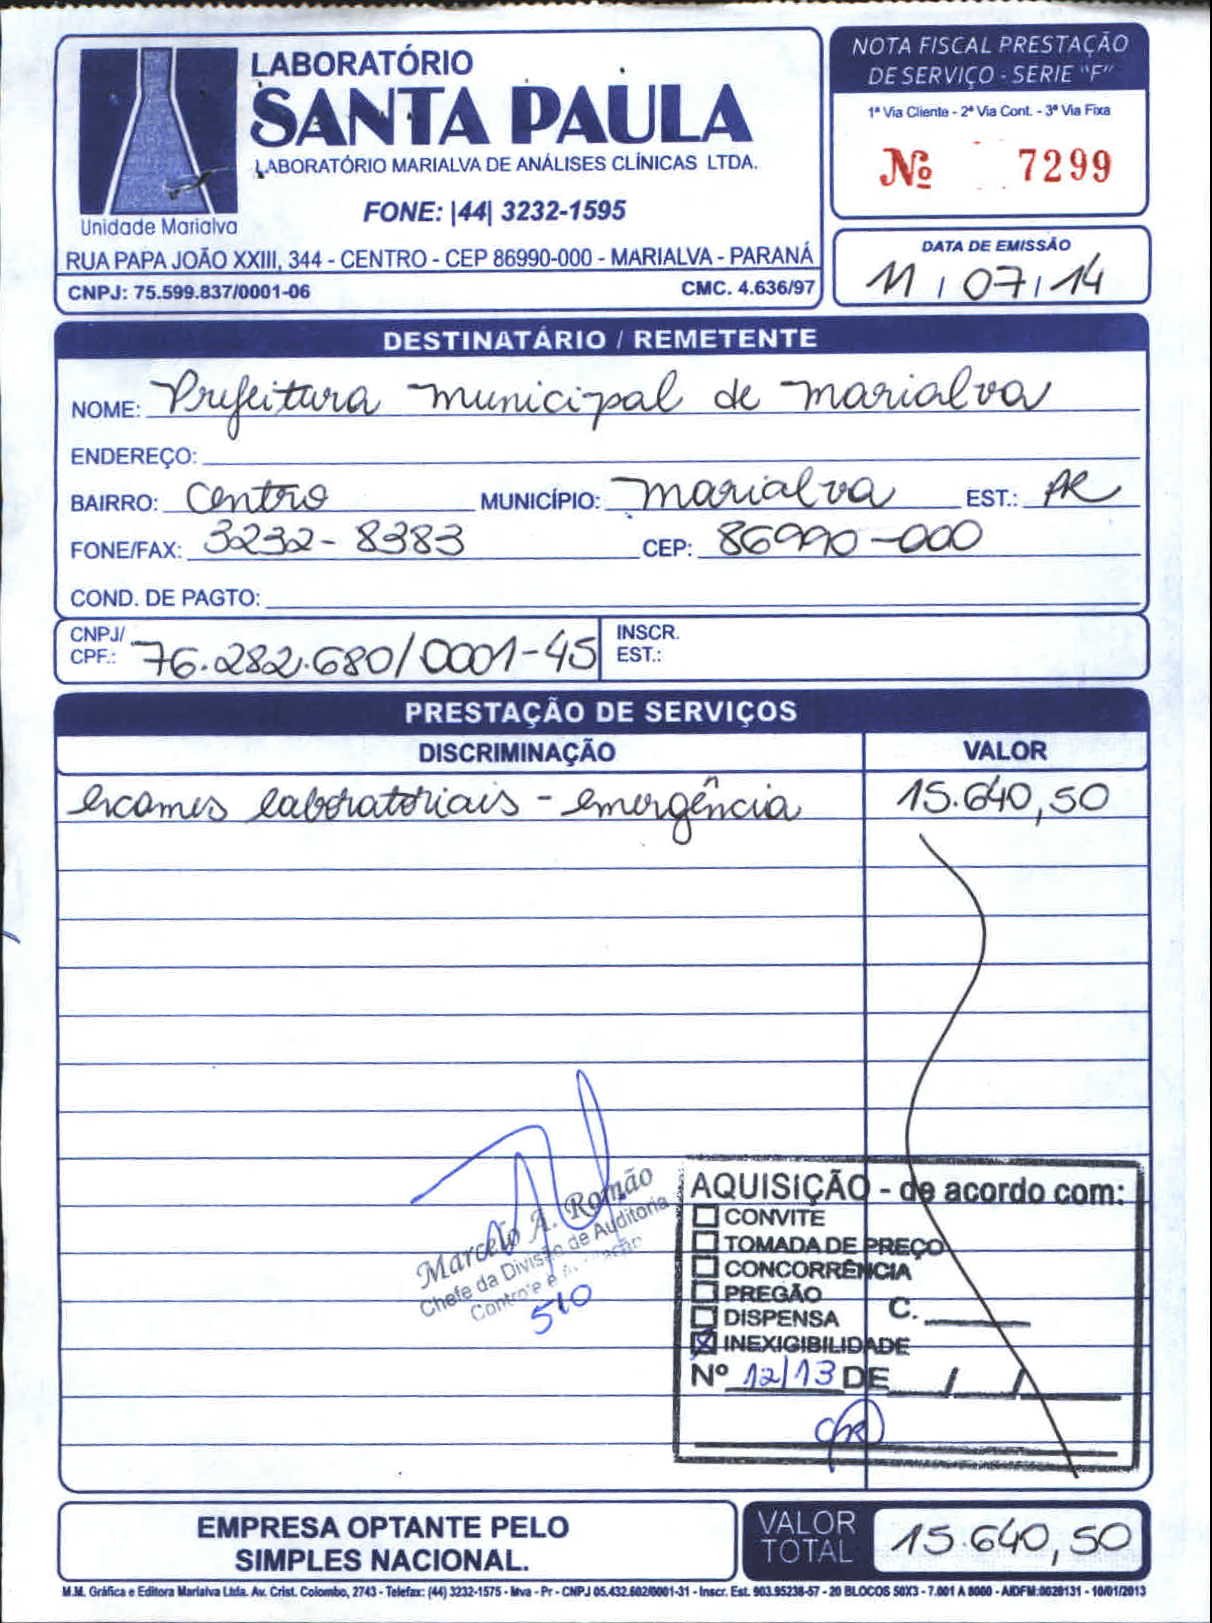 LABORATÓRIO
SANTA PAULA
LABORATÓRIO MARIALVA DE ANÁLISES CLÍNICAS LTDA.
Unidade Marialva
FONE: |44| 3232-1595
RUA PAPA JOÃO XXIII, 344 - CENTRO - CEP 86990-000 - MARIALVA - PARANÁ
CNPJ: 75.599.837/0001-06 CMC. 4.636/97
NOTA FISCAL PRESTAÇÃO
DE SERVIÇO - SERIE "F"
1ª Via Cliente - 2ª Via Cont. - 3ª Via Fixa
Nº 7299
DATA DE EMISSÃO
11 / 07 / 14
DESTINATÁRIO / REMETENTE
NOME: Prefeitura municipal de marialva
ENDEREÇO:
BAIRRO: Centro MUNICÍPIO: marialva EST.: PR
FONE/FAX: 3232-8383 CEP: 86990-000
COND. DE PAGTO:
CNPJ/ CPF.: 76.282.680/0001-45 INSCR. EST.:
PRESTAÇÃO DE SERVIÇOS
DISCRIMINAÇÃO VALOR
exames laboratoriais - emergência 15.640,50
Marcelo A. Romão
Chefe da Divisão de Auditoria
Controle e
510
AQUISIÇÃO - de acordo com:
CONVITE
TOMADA DE PREÇO
CONCORRÊNCIA
PREGÃO
DISPENSA C.
INEXIGIBILIDADE
Nº 12/13 DE / /
EMPRESA OPTANTE PELO
SIMPLES NACIONAL.
VALOR TOTAL 15.640,50
M.M. Gráfica e Editora Marialva Ltda. Av. Crist. Colombo, 2743 - Telefax: (44) 3232-1575 - Mva - Pr - CNPJ 05.432.602/0001-31 - Inscr. Est. 903.95238-57 - 20 BLOCOS 50X3 - 7.001 A 8000 - AIDFM:0020131 - 10/01/2013